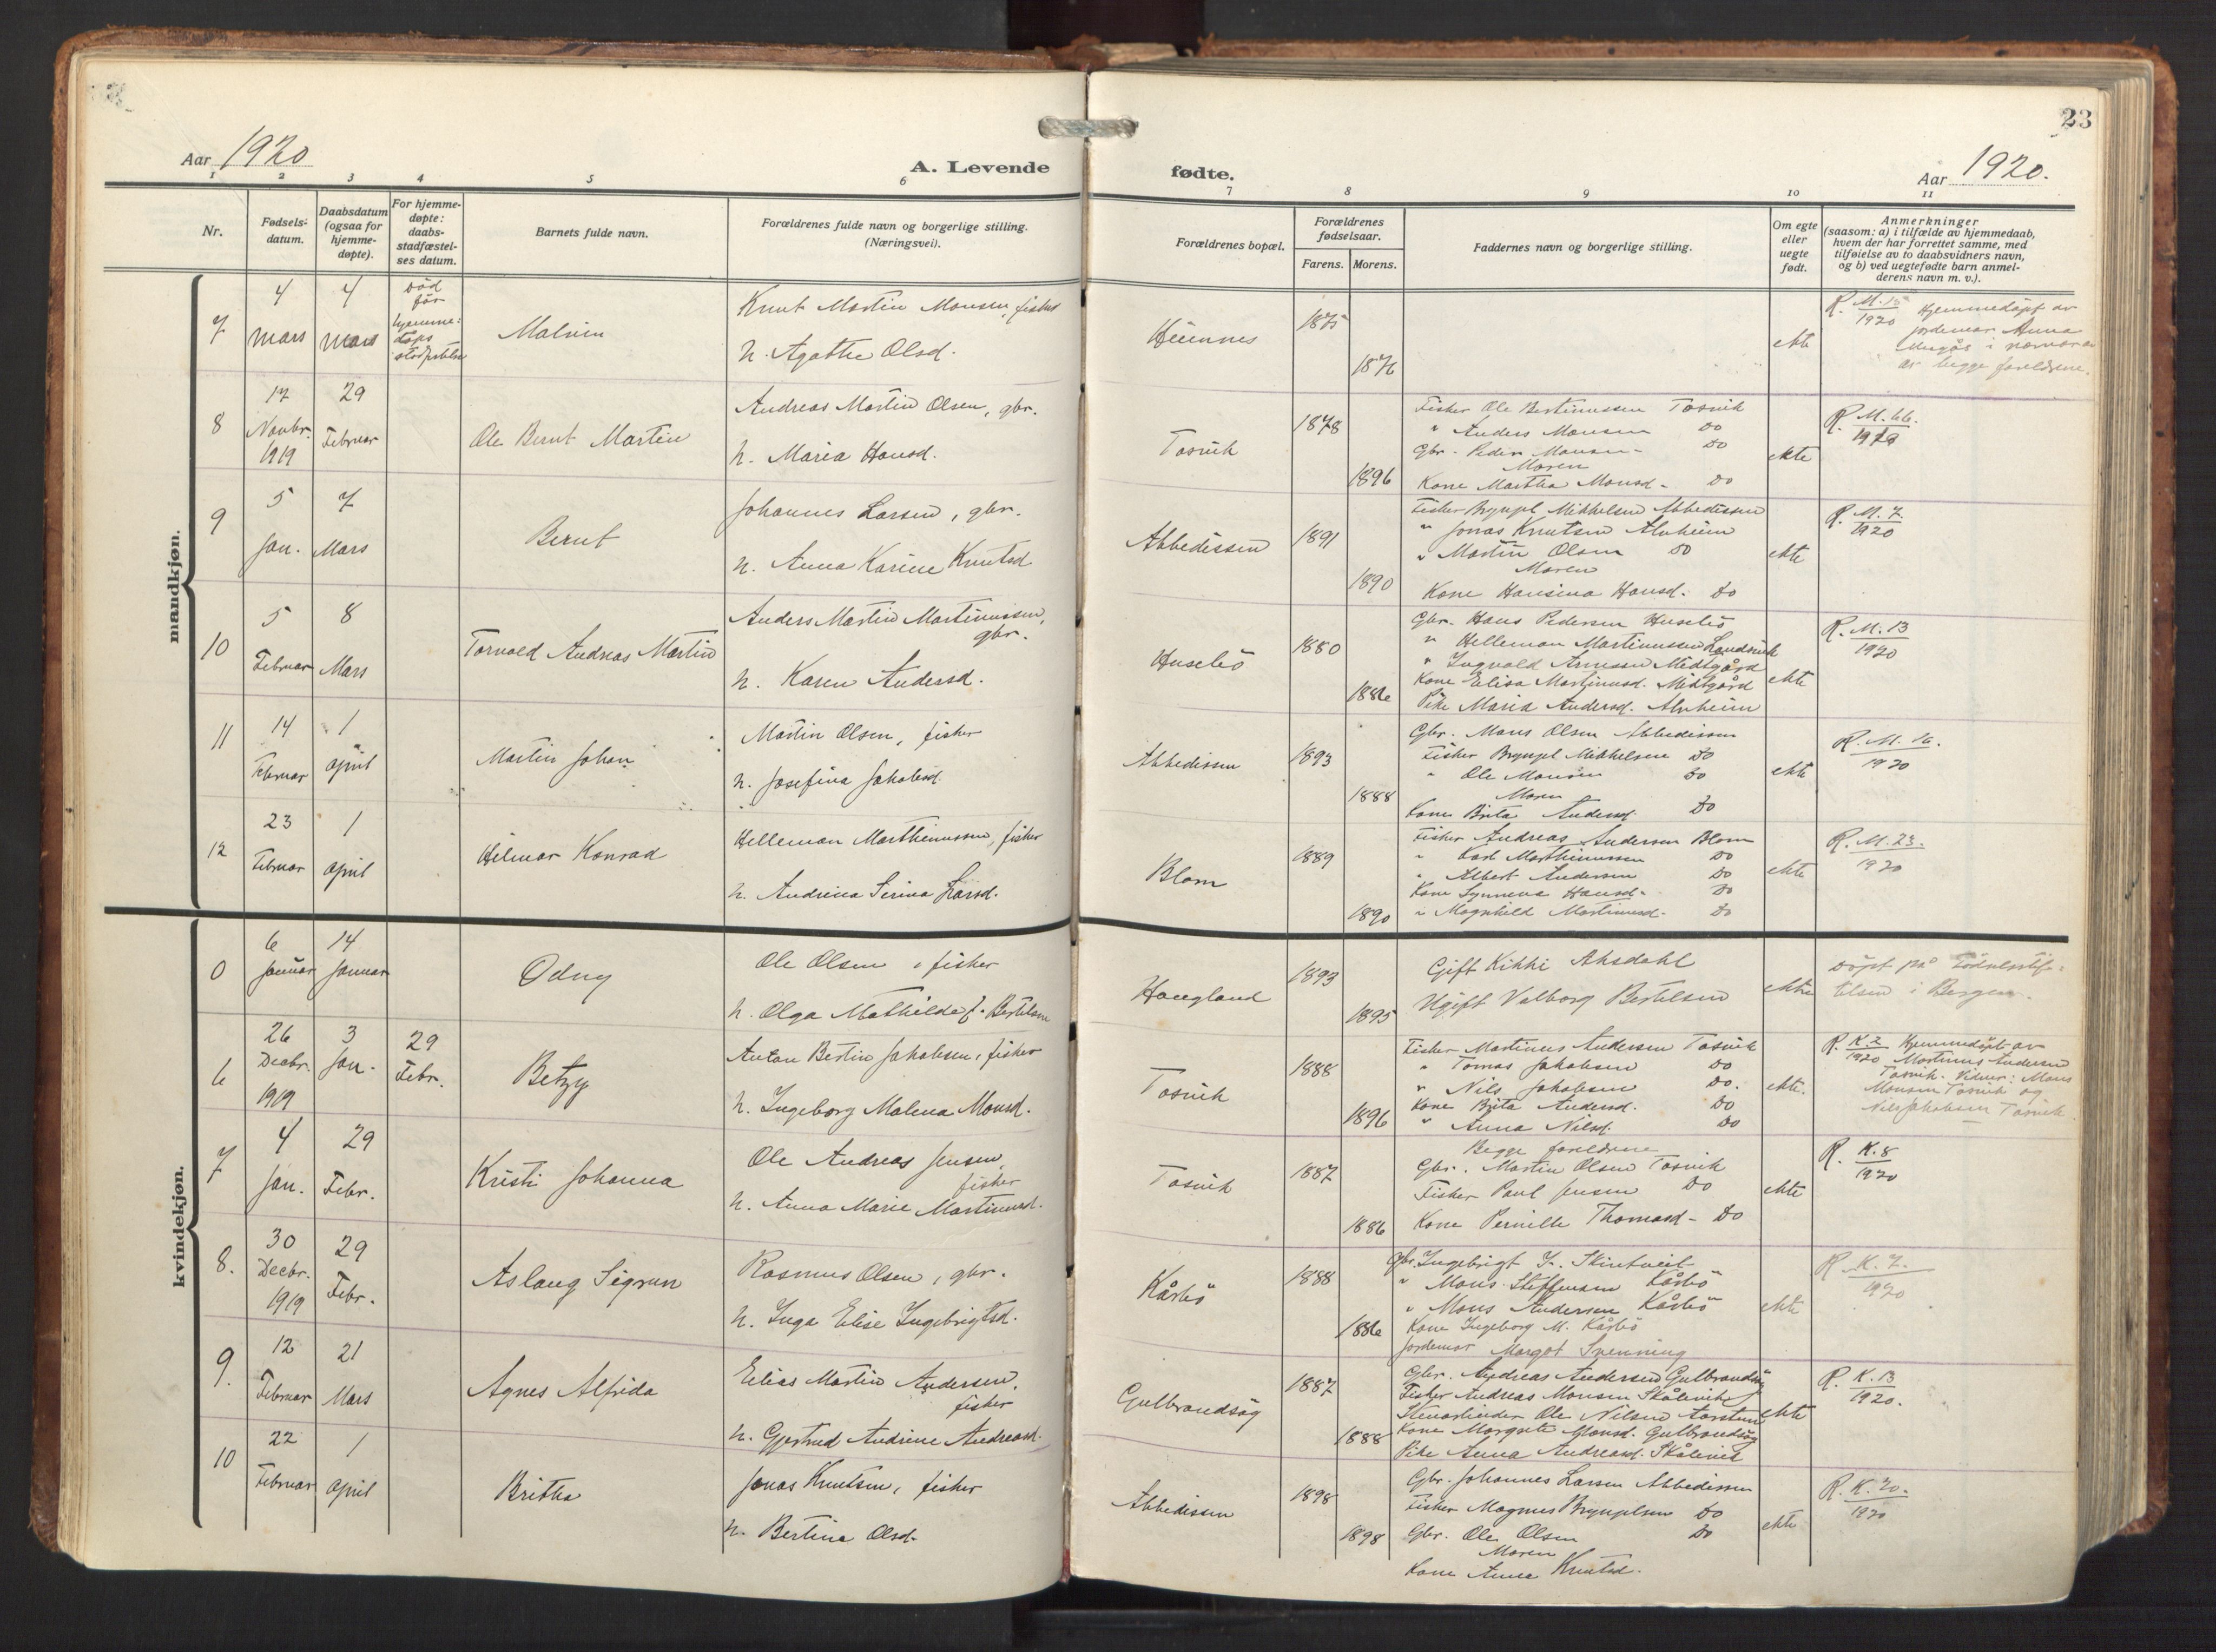 23
Aar 1920
A. Levende
fødte.
Aar 1920.
1 2 3 4 5 6 7 8 9 10 11
Nr.
Fødsels-
datum.
Daabsdatum
(ogsaa for
hjemme-
døpte).
For hjemme-
døpte:
daabs-
stadfæstel-
ses datum.
Barnets fulde navn.
Forældrenes fulde navn og borgerlige stilling.
(Næringsvei).
Forældrenes bopæl.
Forældrenes
fødselsaar.
Farens. Morens.
Faddernes navn og borgerlige stilling.
Om egte
eller
uegte
født.
Anmerkninger
(saasom: a) i tilfælde av hjemmedaab,
hvem der har forrettet samme, med
tilføielse av to daabsvidners navn,
og b) ved uegtefødte barn anmel-
derens navn m. v.).
mandkjøn.
7
4
mars
4
mars
död
før
hjemme-
daps
Malvin
Knut Martin Monsen, fisker
h. Agathe Olsd.
1875
1876
ekte
R. M. 15
1920
Hjemmedöpt av
jordemor Anna
av begge foreldrene.
8
17
Novbr.
1919
29
Februar
Ole Bernt Martin
Andreas Martin Olsen, gbr.
h. Maria Hansd.
Tosvik
1878
1896
Fisker Ole Bertinussen Tosvik
" Anders Monsen Do
Gbr. Peder Monsen Do
Moren
Kone Martha Monsd. Do
ekte
R. M. 66.
1919
9
5
Jan.
7
Mars
Bernt
Johannes Larsen, gbr.
h. Anna Karine Knutsd.
Abbedissen
1891
1890
Fisker Brynjel Mikkelsen Abbedissen
" Jonas Knutsen Alvheim
" Martin Olsen Do
Moren
Kone Hansina Hansd. Do
ekte
R. M. 7
1920
10
5
Februar
8
Mars
Torvald Andreas Martin
Anders Martin Martinussen,
gbr.
h. Karen Andersd.
Husebö
1880
1886
Gbr. Hans Pedersen Husebö
" Helleman Martinussen Landsvik
" Ingvald Arnesen Midtgård
Kone Elisa Martinusd. Midtgård
Pike Maria Andersd. Alvheim
ekte
R. M. 13
1920
11
14
Februar
1
april
Martin Johan
Martin Olsen, fisker
h. Josefina Jakobsd.
Abbedissen
1893
1888
Gbr. Mons Olsen Abbedissen
Fisker Brynjel Mikkelsen Do
" Ole Monsen Do
Moren
Kone Brita Andersd. Do
ekte
R. M. 16.
1920
12
23
Februar
1
april
Hilmar Konrad
Helleman Marthinussen, fisker
h. Andrina Serina Larsd.
Blom
1889
1890
Fisker Andreas Andersen Blom
" Karl Marthinussen Do
" Albert Andersen Do
Kone Synneva Hansd. Do
" Magnhild Martinusd. Do
ekte
R. M. 23.
1920
kvindekjøn.
0
6
Januar
14
Januar
Odny
Ole Olsen, fisker
h. Olga Mathilde f. Bertilsen
Haugland
1893
1895
Gift Kikki Aksdahl
Ugift Valborg Bertelsen
ekte
Döpt på Födselsstif-
telsen i Bergen.
6
26
Decbr.
1919
3
Jan.
29
Febr.
Betzy
Anton Bertin Jakobsen, fisker
h. Ingeborg Malena Monsd.
Tosvik
1888
1896
Fisker Martinus Andersen Tosvik
" Tomas Jakobsen Do
" Nils Jakobsen Do.
Kone Brita Andersd. Do
" Anna Nilsd. Do
ekte.
R. K. 2
1920
Hjemmedöpt av
Martinus Andersen
Tosvik. Vidner: Mons
Monsen Tosvik og
Nils Jakobsen Tosvik.
7
4
Jan.
29
Febr.
Kristi Johanna
Ole Andreas Jensen,
fisker
h. Anna Marie Martinusd.
Tosvik
1887
1886
Begge foreldrene
Gbr. Martin Olsen Tosvik
Fisker Paul Jensen Do
Kone Pernille Thomasd. Do
ekte
R. K. 8
1920
8.
30
Decbr.
1919
29
Febr.
Aslaug Sigrun
Rasmus Olsen, gbr.
h. Inga Elise Ingebrigtsd.
Kårbö
1888
1886
Gbr. Ingebrigt J. Skintveit
" Mons Steffensen Kårbö
" Mons Andersen Kårbö
Kone Ingeborg M. Kårbö
Jordemor Margot Svenning
ekte
R. K. 7.
1920
9.
12
Februar
21
Mars
Agnes Alfrida
Elias Martin Andersen,
fisker
h. Gjertrud Andrine Andreasd.
Gulbrandsög
1887
1888
Gbr. Andreas Andersen Gulbrandsög
Fisker Andreas Monsen Skålevik
Stenarbeider Ole Nilsen
Kone Margrete Monsd. Gulbrandsög
Pike Anna Andreasd. Skålevik
ekte
R. K. 13
1920.
10
22
Februar
1
april
Britha
Jonas Knutsen, fisker
h. Bertina Olsd.
Abbedissen
1898
1898
Gbr. Johannes Larsen Abbedissen
Fisker Magnus Brynjelsen Do
Gbr. Ole Olsen Do
Moren
Kone Anna Knutsd.
ekte
R. K. 20.
1920